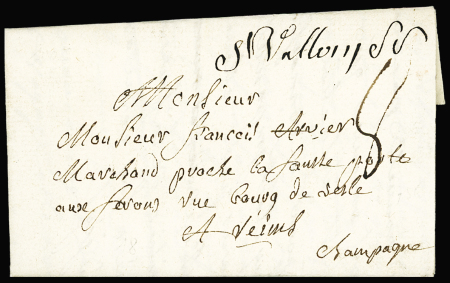 St Vallony
Monsieur
Monsieur francois Arvier
Marchand proche la fausse porte
aux ferons rue bourg de vesle
A reims
champagne